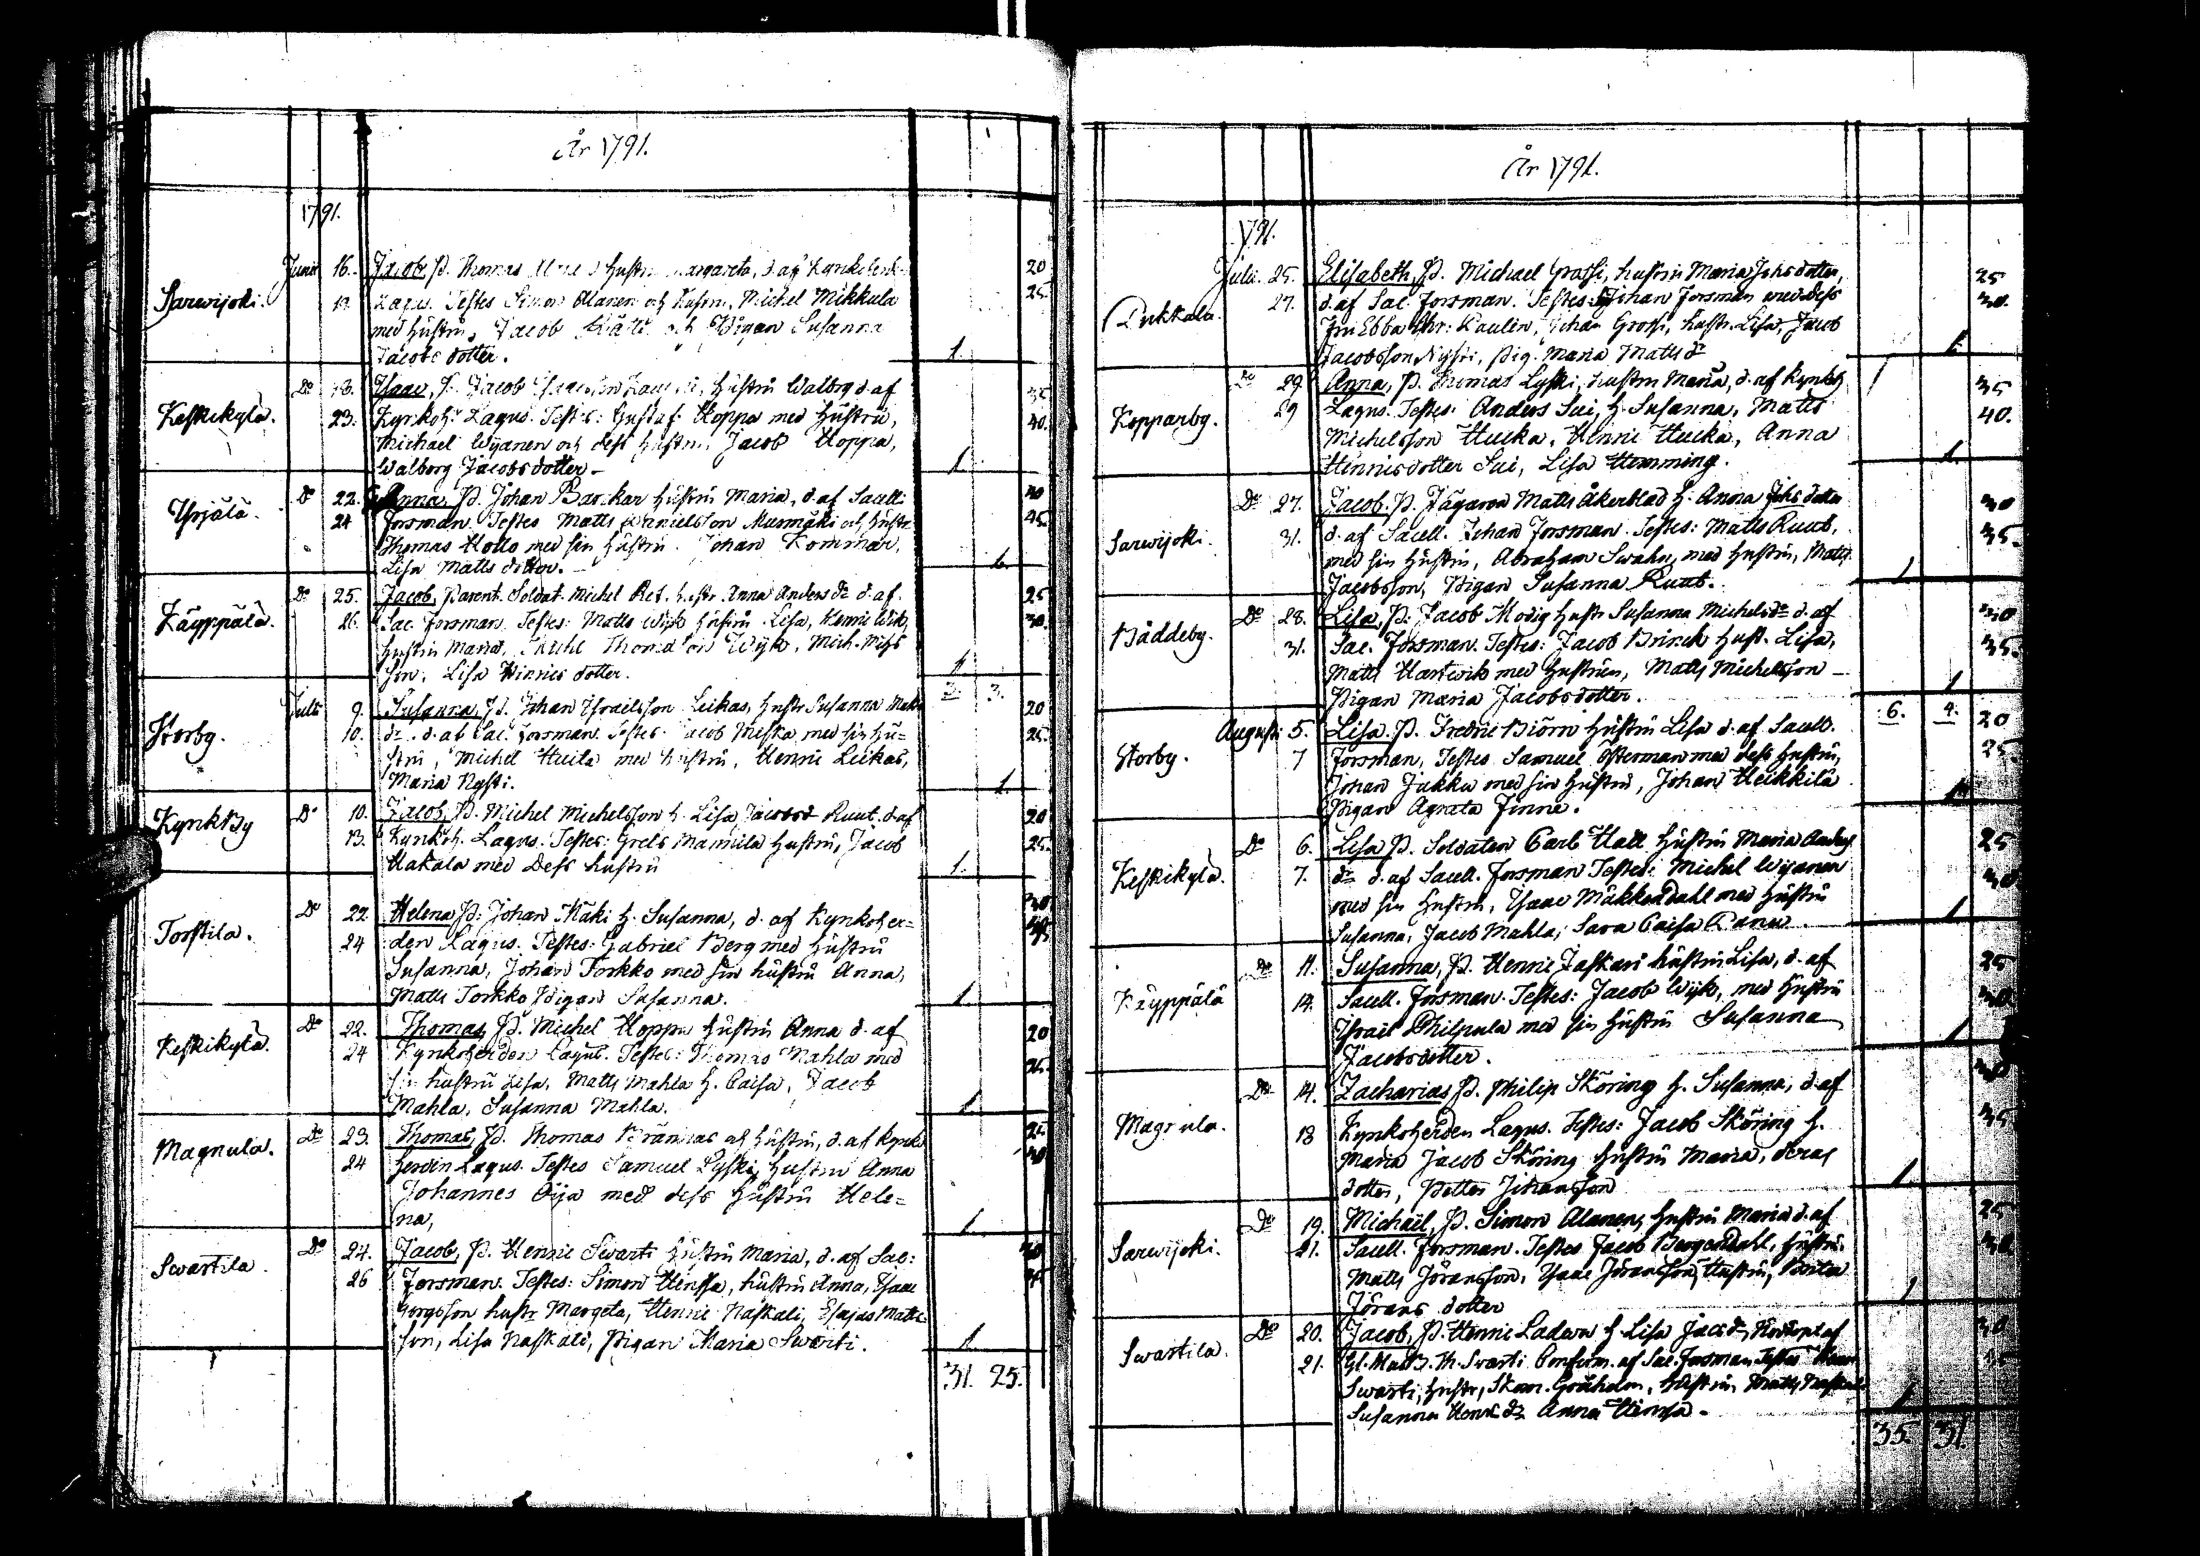 År 1791.
1791.
Sarwijoki. Junii 16. Jacob, P. Thomas hustru Margareta, d. af Kynkoherd- 20
19. Lagus. Testes Simon Alanen och hustru, Michel Mikkula 25.
med hustru, Jacob och Pigan Susanna
Jacobs dotter. 1.
Keskikylä. Do 18. Isaac, P. Jacob hustru Walborg d. af 35
23. Kyrkoh. Lagus. Testes: Gustaf Hoppa med hustru, 40.
Michael Wijanen och dess hustru, Jacob Hoppa,
Walborg Jacobsdotter - 1
Yrjälä. Do 22. Anna, P. Johan Barckar hustru Maria, d. af Sacell: 40
24 Forsman. Testes Matts Musmäki och hustru 45.
Thomas Hollo med sin hustru. Johan Kommar,
Lisa Matts dotter. - 1.
Käyppälä. Do 25. Jacob, Parent. Soldat. Michel Ret. hustr. Anna Anders dr d. af. 25
26. Sac. Forsman. Testes: Matts Wijk hustru Lisa, Henric Wijk, 30.
hustru Maria, Michel Thomasson Wijk, Mich. Mich
son, Lisa Hinrics dotter. 1
3. 3.
Storby. Julii 9. Susanna, P. Johan Israelsson Leikas, hustr Susanna Matts 20
10. dr. d. af Sac. Forsman. Testes: Jacob Miska med sin hu= 25.
stru, Michel Huila med hustru, Henric Leikas,
Maria Nysti. 1.
KynkBy Do 10. Jacob, P. Michel Michelsson h. Lisa Jacobsd Ruut. d. af 20
13. Kynkoh. Lagus. Testes: Grels Mannila hustru, Jacob 25.
Hakala med Dess hustru 1.
Torstila. Do 22. Helena, P: Johan Mäki h. Susanna, d. af Kynkoher=
24 den Lagus. Testes: Gabriel Berg med hustru
Susanna, Johan Torkko med sin hustru Anna,
Matts Torkko, Pigan Susanna. 1.
Keskikylä. Do 22. Thomas, P. Michel Hoppa hustru Anna d. af 20
24 Kynkoherden Lagus. Testes: Thomas Mahla med 25.
sin hustru Lisa, Matts Mahla h. Caisa, Jacob
Mahla, Susanna Mahla. 1.
Magnula. Do 23. Thomas, P. Thomas Brännas och hustru, d. af Kynko 25
24 herden Lagus. Testes Samuel Lyski, hustru Anna 30
Johannes Öija med dess hustru Hele=
na, 1
Swartila. Do 24. Jacob, P. Henric Swarti hustru Maria, d. af Sac: 40
26 Forsman. Testes: Simon Hinssa, hustru Anna, Isaac 45
Görgsson hustr Margeta, Henric Naskali, Esajas Matts
son, Lisa Naskali, Pigan Maria Swarti. 1
31. 25.
År 1791.
1791.
Pukkala. Julii. 25. Elisabeth, P. Michael Grossi, hustru Maria Johs dotter, 25
27. d. af Sac. Forsman. Testes: Johan Forsman med dess 30.
Fru Ebba Chr: Paulin, Johan Grossi, hustr. Lisa, Jacob
Jacobsson Nysti, Pig. Maria Matts dr 1.
Kopparby. Do 29. Anna, P. Thomas Lyski, hustru Maria, d. af Kynkoh 35
29 Lagus. Testes: Anders Sui, h. Susanna, Matts 40.
Michelsson Hucka, Henric Hucka, Anna
Hinricsdotter Sui, Lisa Hemming. 1.
Sarwijoki. Do 27. Jacob. P. Jägaren Matts Åkerblad h. Anna Johs dotter 30
31. d. af Sacell. Johan Forsman. Testes: Matts Ruut, 35.
med sin hustru, Abraham Swahn, med hustru, Matts
Jacobsson, Pigan Susanna Ruut. 1
Wäddeby. Do 28. Lisa, P: Jacob Modig hustr Susanna Michels dr d. af 30
31. Sac. Forsman. Testes: Jacob Brinck hust. Lisa, 35.
Matts Hartwik med hustrun, Matts Michelsson -
Pigan Maria Jacobsdotter. 1
6. 4.
Storby. Augusti 5. Lisa, P. Fredric Biörn hustru Lisa d. af Sacell. 20
7 Forsman, Testes Samuel Österman med dess hustru, 25
Johan Jakku med sin hustru, Johan Heikkilä
Pigan Agneta Finne. 1
Keskikylä. Do 6. Lisa P. Soldaten Carl Hall hustru Maria Anders 25
7. dr d. af Sacell. Forsman Testes: Michel Wijanen 30
med sin hustru, Isaac Mäkkendahl med hustru
Susanna, Jacob Mahla, Sara Caisa 1
Käyppälä Do 11. Susanna, P. Henric Jaskari hustru Lisa, d. af 25
14. Sacell. Forsman. Testes: Jacob Wijk, med hustru 30
Israel Philpula med sin hustru Susanna
Jacobsdotter. 1
Magnula. Do 14. Zacharias P. Philip Sköring h. Susanna, d. af
18 Kynkoherden Lagus. Testes: Jacob Sköring h. 35
Maria Jacob Sköring hustru Maria,
dotter, Petter Johansson 1
Sarwijoki. Do 19. Michaël, P. Simon Alanen, hustru Maria d. af 25
21. Sacell. Forsman. Testes Jacob Bergendahl, hustru. 30
Matts Jöransson, Isaac Jöransson, hustru,
Jörans dotter 1
Swartila. Do 20. Jacob, P. Henric Ladern h. Lisa Jacsdr, Nöddopt af 30
21. Gl. M. Swarti Confirm. af Sac. Forsman. Testes
Swarti, hustr, Skom. Gråholm, hustru, Matts Naskali
Susanna Henr. dr Anna Hinssa - 1
35. 31.